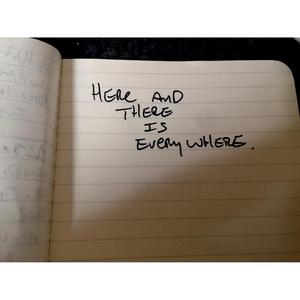 HERE AND
THERE
IS
EVERYWHERE.